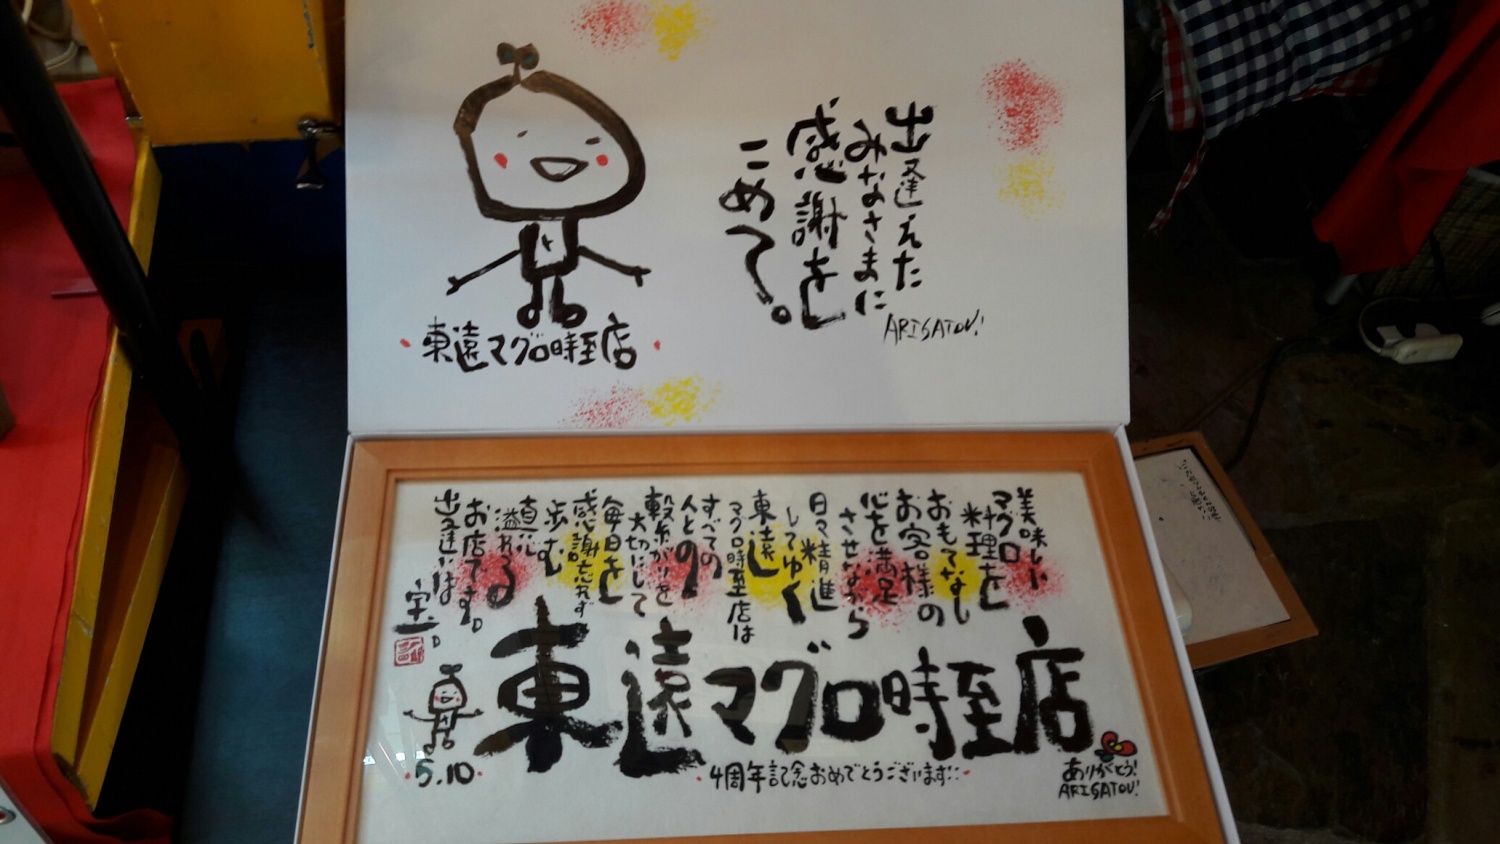 出逢えた
みなさまに
感謝をし
こめて。
ARIGATOU!
東遠マグロ時至店
美味しい
マグロ
料理を
おもてなし
お客様の
心を満足
させながら
日々精進
してゆく
東遠
マグロ時至店は
すべての
人との
繋がりを
大切にして
毎日を
感謝忘れず
歩む
真心
溢れる
お店です。
出逢いは
宝。
東遠マグロ時至店
5.10
4周年記念おめでとうございます
ありがとう!
ARIGATOU!